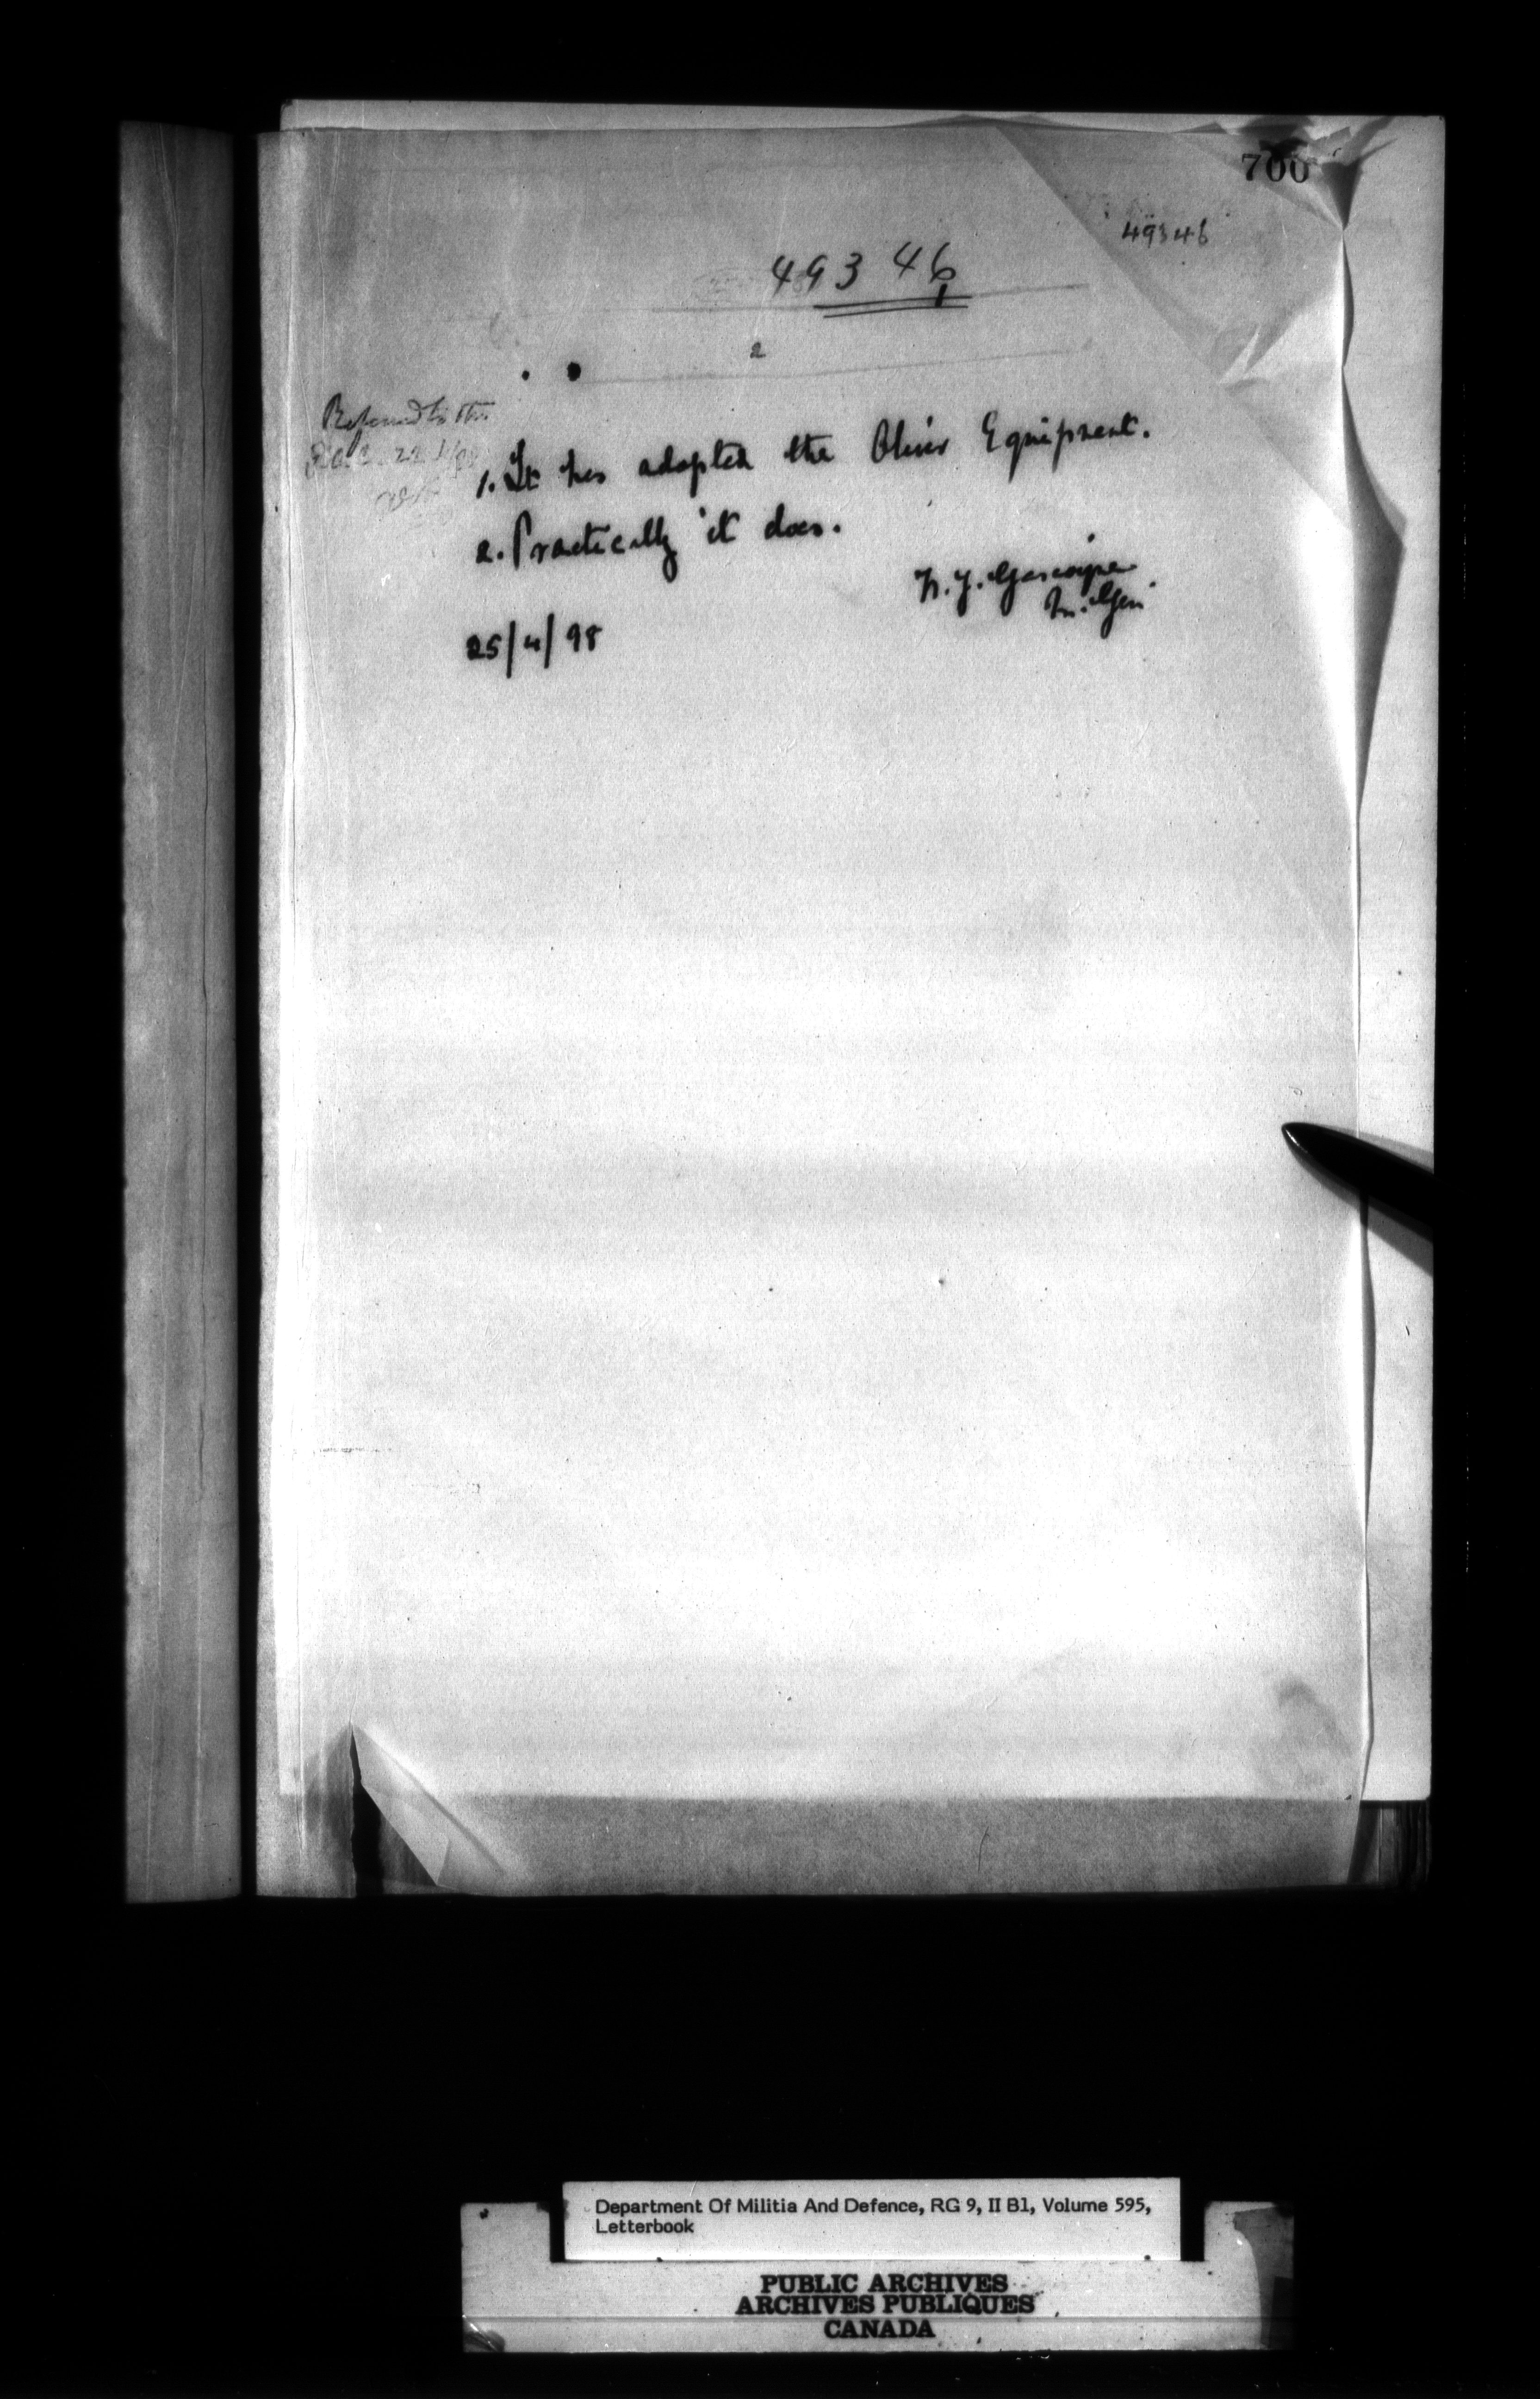 700
49346
49346
2
Referred to the
1. It has adopted the Oliver Equipment.
2. Practically it does.
W. J. Gascoigne
M. Gen
25/4/98
Department Of Militia And Defence, RG 9, II B1, Volume 595,
Letterbook
PUBLIC ARCHIVES
ARCHIVES PUBLIQUES
CANADA